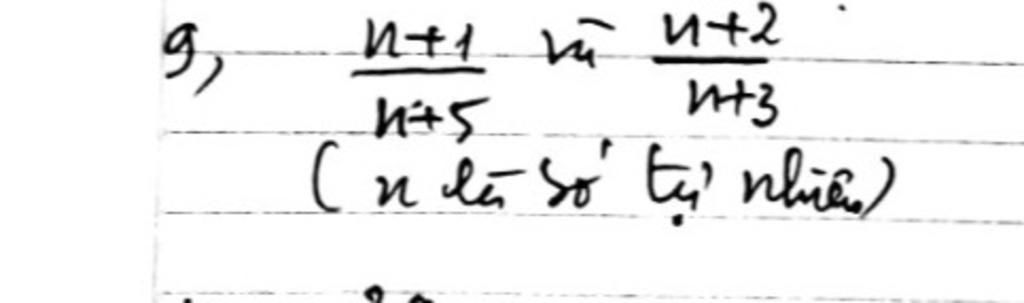 g, \frac{n+1}{n+5} và \frac{n+2}{n+3}
(n là số tự nhiên)